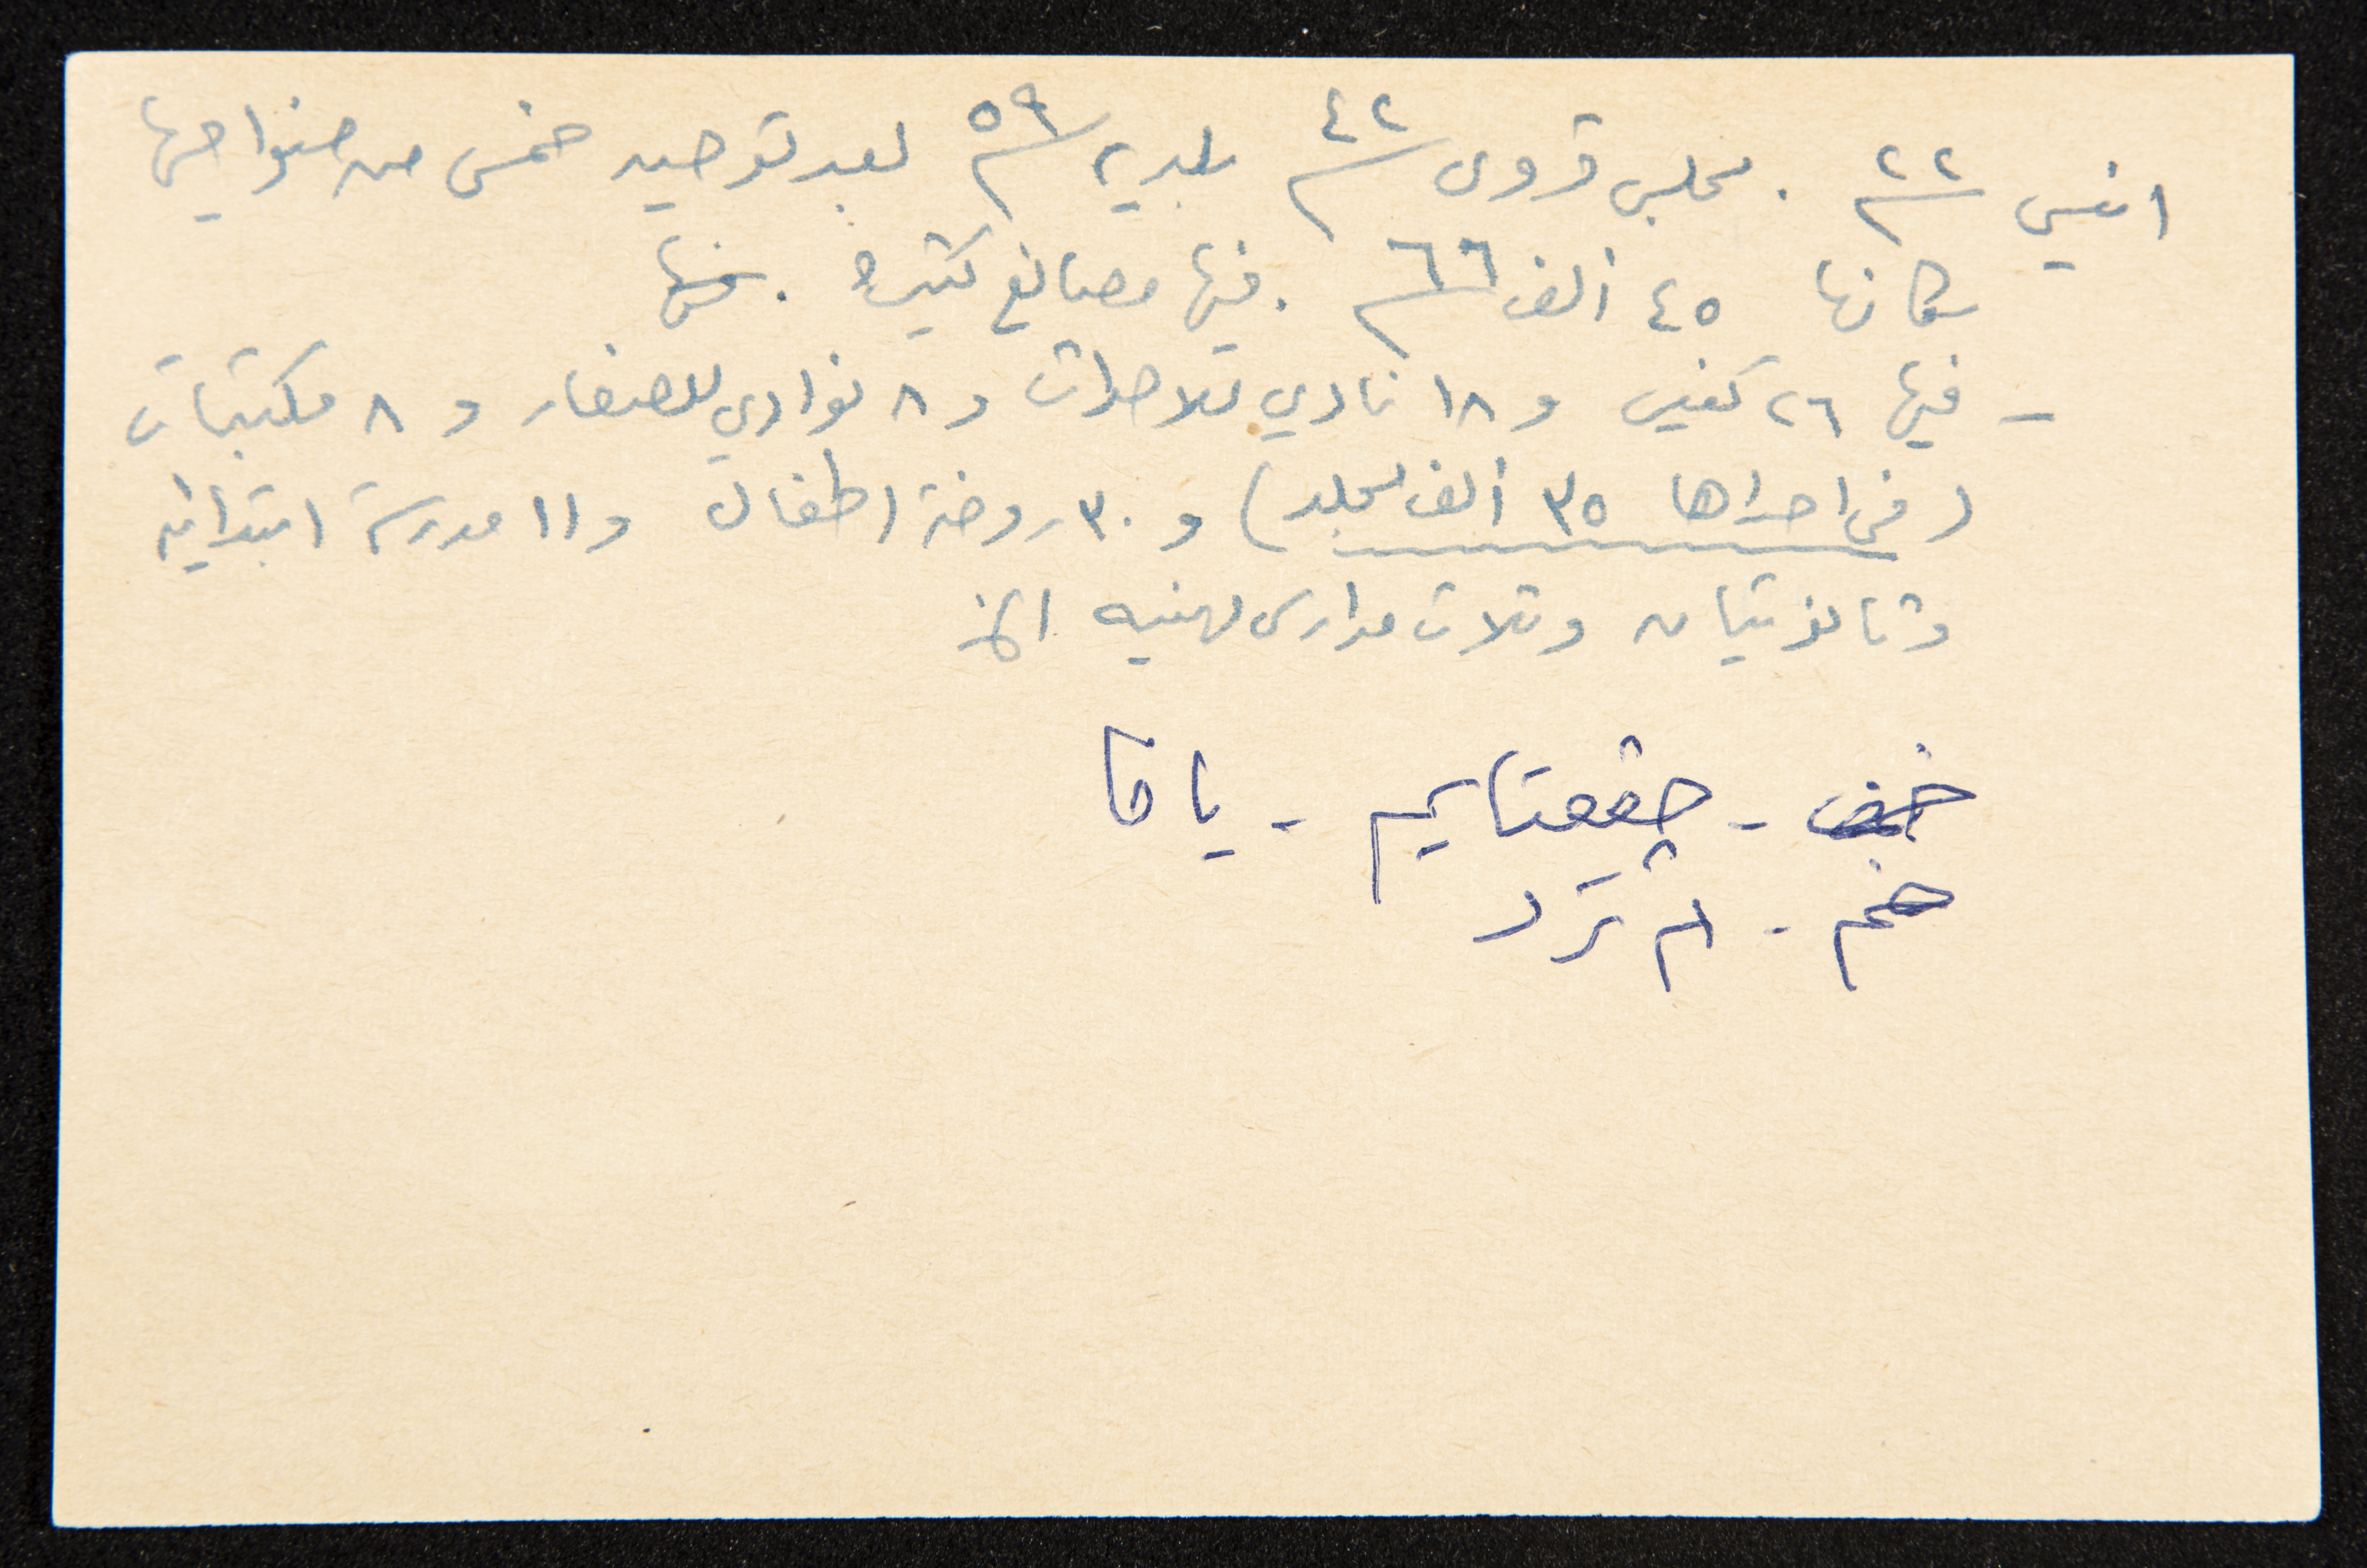 انشئ سنة ٢٢ . مجلس قروي سنة ٤٢ بلدية سنة ٥٩ بعد توحيد خمس من ضواحيها
سكانها ٤٥ ألف سنة ٦٦ . فيها مصانع كثيرة . منها
- فيها ٢٦ كنيس و ١٨ نادي للاحداث و ٨ نوادي للصغار و ٨ مكتبات
(في احداها ٣٥ ألف مجلد) و ٣٠ روضة اطفال و ١١ مدرسة ابتدائية
وثانويتان وثلاث مدارس مهنية الخ
خف - جفعتايم - يافا
خم - لم ترد